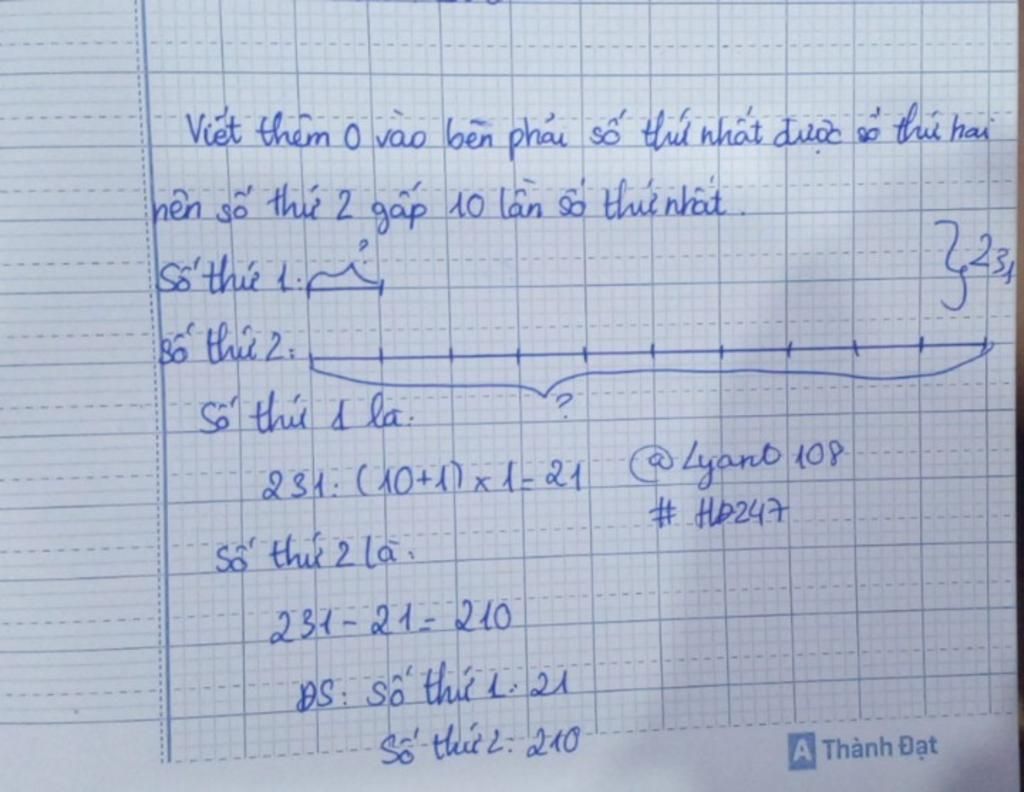 Viết thêm 0 vào bên phải số thứ nhất được số thứ hai
nên số thứ 2 gấp 10 lần số thứ nhất.
?
Số thứ 1:
231
Số thứ 2:
?
Số thứ 1 là:
231: (10+1) x 1 = 21
@Lyan0 108
# HD247
Số thứ 2 là:
231 - 21 = 210
ĐS: Số thứ 1: 21
Số thứ 2: 210
A Thành Đạt